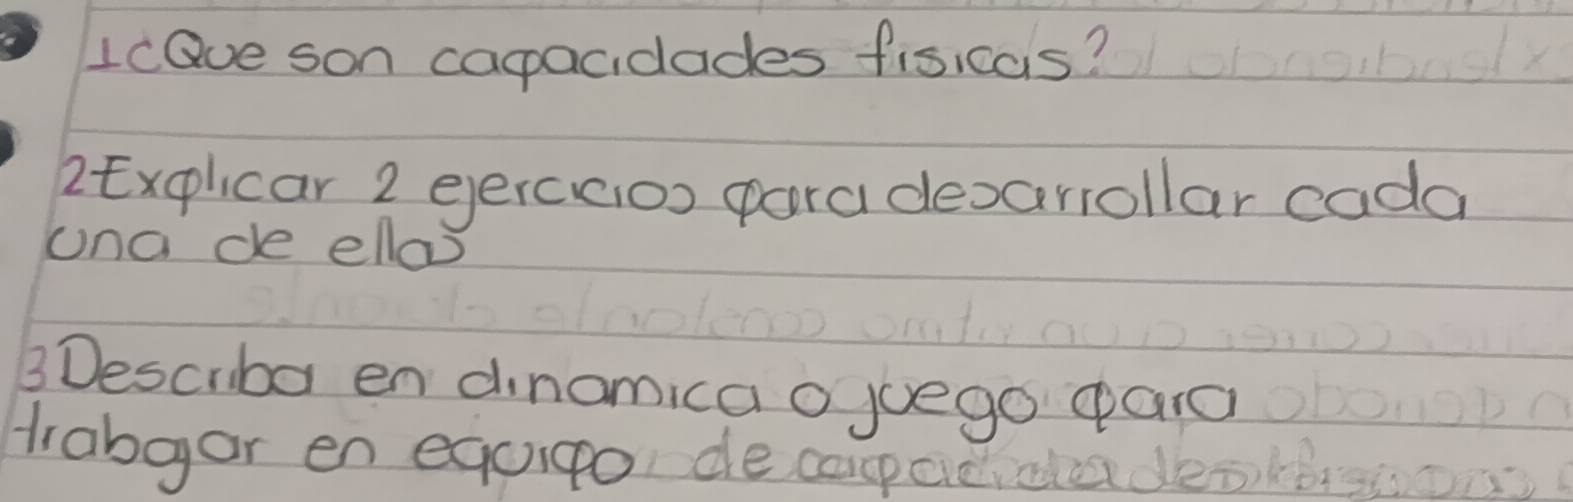 1¿Que son capacidades fisicas?
2Explicar 2 ejercicios para desarrollar cada
una de ellas
3Describa en dinamica o juego para
trabajar en equipo de capacidades fisicas